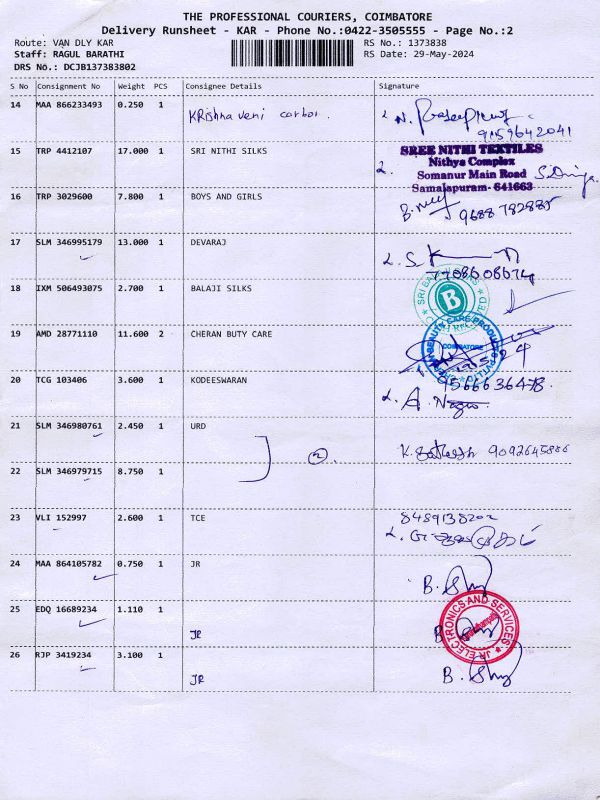 THE PROFESSIONAL COURIERS, COIMBATORE
Delivery Runsheet - KAR - Phone No.:0422-3505555 - Page No.:2
Route: VAN DLY KAR RS No.: 1373838
Staff: RAGUL BARATHI RS Date: 29-May-2024
DRS No.: DCJB137383802
S No Consignment No Weight PCS Consignee Details Signature
14 MAA 866233493 0.250 1 Krishna veni carbor.
9159642041
15 TRP 4412107 17.000 1 SRI NITHI SILKS
SREE NITHI TEXTILES
Nithya Complex
Somanur Main Road
Samalapuram- 641663
16 TRP 3029600 7.800 1 BOYS AND GIRLS
9688782885
17 SLM 346995179 13.000 1 DEVARAJ
7708608674
18 IXM 506493075 2.700 1 BALAJI SILKS
B
19 AMD 28771110 11.600 2 CHERAN BUTY CARE
COIMBATORE
20 TCG 103406 3.600 1 KODEESWARAN
9566636478.
21 SLM 346980761 2.450 1 URD
2. K. Sathesh 9092645886
22 SLM 346979715 8.750 1
23 VLI 152997 2.600 1 TCE
8489138202
24 MAA 864105782 0.750 1 JR
25 EDQ 16689234 1.110 1 JR
JR ELECTRONICS AND SERVICES
26 RJP 3419234 3.100 1 JR